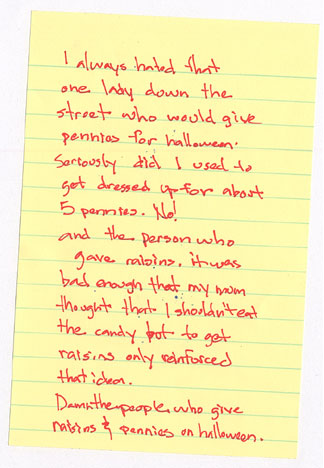 I always hated that
one lady down the
street who would give
pennies for halloween.
Seriously did I used to
get dressed up for about
5 pennies. No!
and the person who
gave raisins. it was
bad enough that my mom
thought that I shouldn't eat
the candy but to get
raisins only reinforced
that idea.
Damn the people who give
raisins & pennies on halloween.